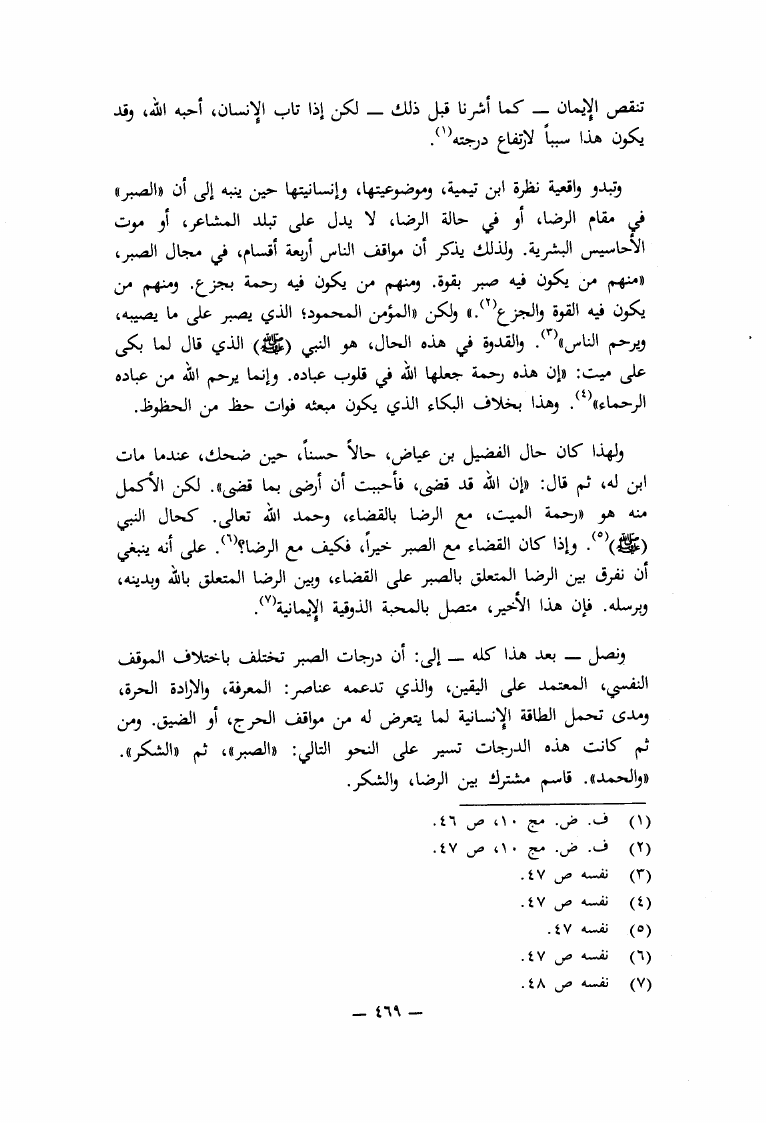 تنقص الإيمان — كما أشرنا قبل ذلك — لكن إذا تاب الإنسان، أحبه الله، وقد
يكون هذا سبباً لارتفاع درجته(١).
وتبدو واقعية نظرة ابن تيمية، وموضوعيتها، وإنسانيتها حين ينبه إلى أن «الصبر»
في مقام الرضا، أو في حالة الرضا، لا يدل على تبلد المشاعر، أو موت
الأحاسيس البشرية. ولذلك يذكر أن مواقف الناس أربعة أقسام، في مجال الصبر،
«منهم من يكون فيه صبر بقوة. ومنهم من يكون فيه رحمة بجزع. ومنهم من
يكون فيه القوة والجزع(٢).» ولكن «المؤمن المحمود؛ الذي يصبر على ما يصيبه،
ويرحم الناس»(٣). والقدوة في هذه الحال، هو النبي (ﷺ) الذي قال لما بكى
على ميت: «إن هذه رحمة جعلها الله في قلوب عباده. وإنما يرحم الله من عباده
الرحماء»(٤). وهذا بخلاف البكاء الذي يكون مبعثه فوات حظ من الحظوظ.
ولهذا كان حال الفضيل بن عياض، حالاً حسناً، حين ضحك، عندما مات
ابن له، ثم قال: «إن الله قد قضى، فأحببت أن أرضى بما قضى». لكن الأكمل
منه هو «رحمة الميت، مع الرضا بالقضاء، وحمد الله تعالى. كحال النبي
(ﷺ)(٥). وإذا كان القضاء مع الصبر خيراً، فكيف مع الرضا؟(٦). على أنه ينبغي
أن نفرق بين الرضا المتعلق بالصبر على القضاء، وبين الرضا المتعلق بالله وبدينه،
وبرسله. فإن هذا الأخير، متصل بالمحبة الذوقية الإيمانية(٧).
ونصل — بعد هذا كله — إلى: أن درجات الصبر تختلف باختلاف الموقف
النفسي، المعتمد على اليقين، والذي تدعمه عناصر: المعرفة، والارادة الحرة،
ومدى تحمل الطاقة الإنسانية لما يتعرض له من مواقف الحرج، أو الضيق. ومن
ثم كانت هذه الدرجات تسير على النحو التالي: «الصبر»، ثم «الشكر».
«والحمد». قاسم مشترك بين الرضا، والشكر.
(١) ف. ض. مج ١٠، ص ٤٦.
(٢) ف. ض. مج ١٠، ص ٤٧.
(٣) نفسه ص ٤٧.
(٤) نفسه ص ٤٧.
(٥) نفسه ٤٧.
(٦) نفسه ص ٤٧.
(٧) نفسه ص ٤٨.
— ٤٦٩ —